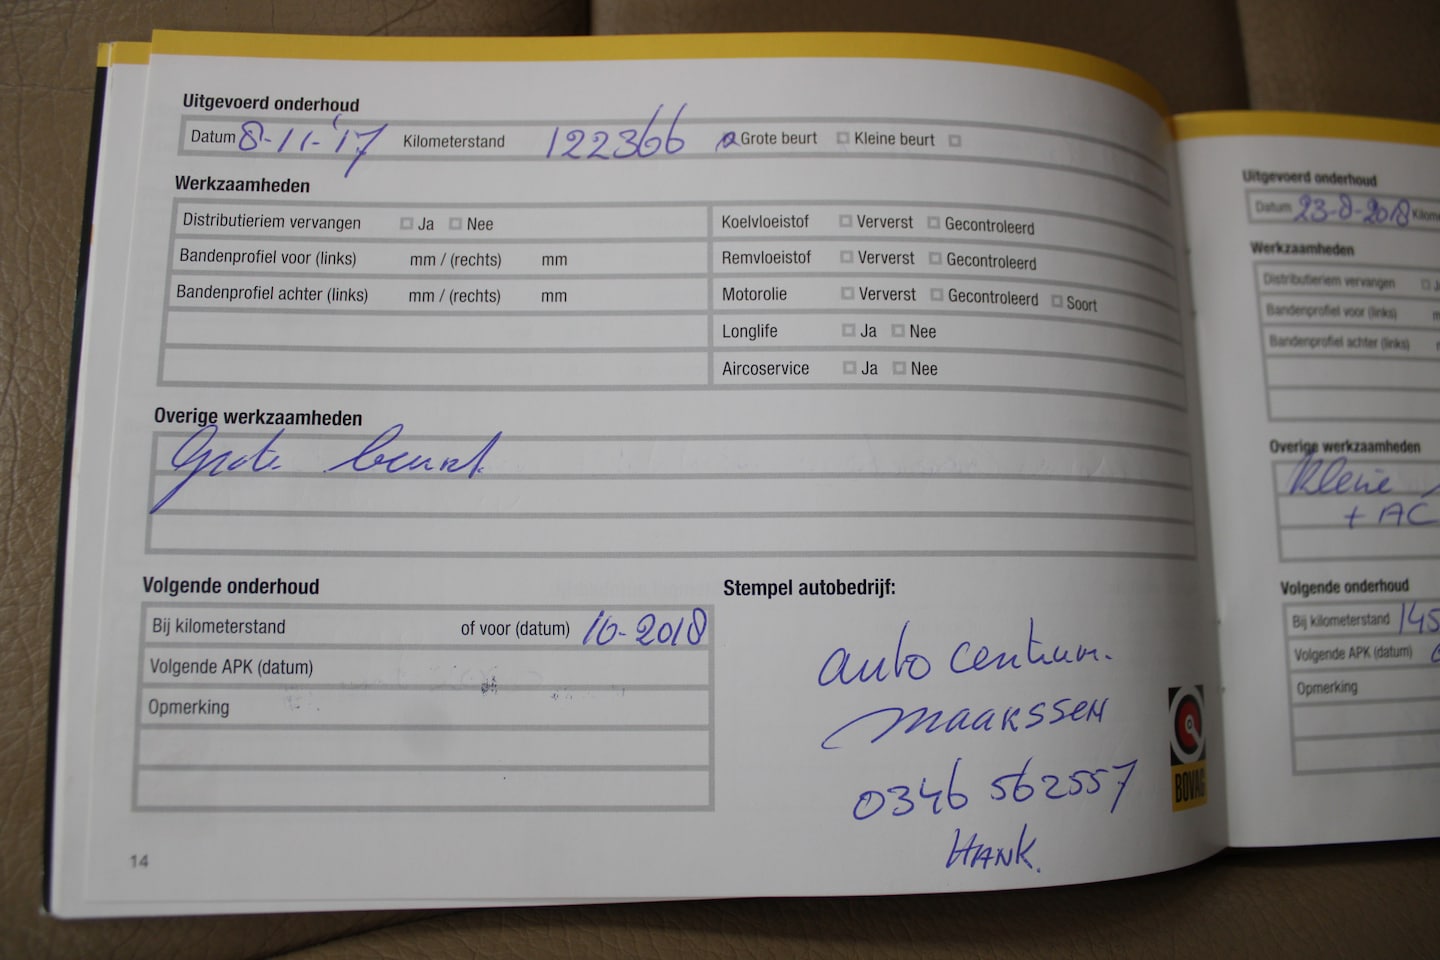 Uitgevoerd onderhoud
Datum 8-11-'17 Kilometerstand 122366 Grote beurt Kleine beurt
Werkzaamheden
Distributieriem vervangen Ja Nee
Bandenprofiel voor (links) mm / (rechts) mm
Bandenprofiel achter (links) mm / (rechts) mm
Koelvloeistof Ververst Gecontroleerd
Remvloeistof Ververst Gecontroleerd
Motorolie Ververst Gecontroleerd Soort
Longlife Ja Nee
Aircoservice Ja Nee
Overige werkzaamheden
Grote beurt
Volgende onderhoud
Bij kilometerstand of voor (datum) 10-2018
Volgende APK (datum)
Opmerking
Stempel autobedrijf:
auto centrum.
MAARSSEN
0346 562557
HANK.
BOVAG
14
Uitgevoerd onderhoud
Datum 23-8-2018
Werkzaamheden
Distributieriem vervangen
Bandenprofiel voor (links)
Bandenprofiel achter (links)
Overige werkzaamheden
Kleine
+ AC
Volgende onderhoud
Bij kilometerstand 145
Volgende APK (datum)
Opmerking